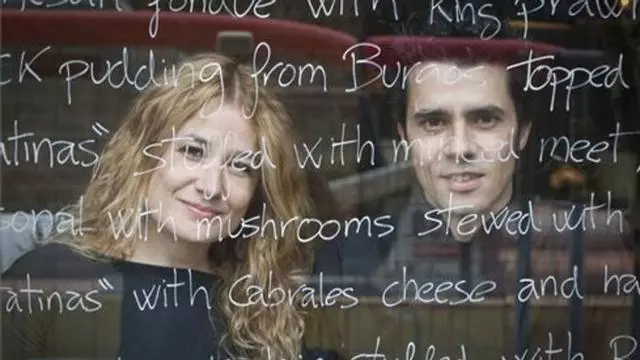 fondue with King prawn
CK pudding from Burgos topped
atinas" stewed with minced meet,
sonal with mushrooms stewed with
atinas" with Cabrales cheese and ha
stuffed with